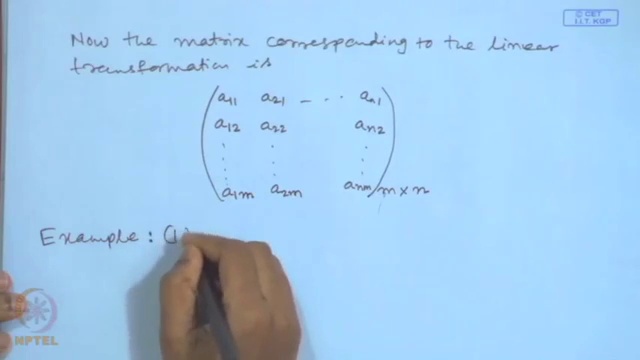 © CET
I.I.T. KGP
Now the matrix corresponding to the linear
transformation is
a11 a21 - ··· an1
a12 a22 an2
⋮ ⋮ ⋮
a1m a2m anm m×n
Example: (1)
NPTEL